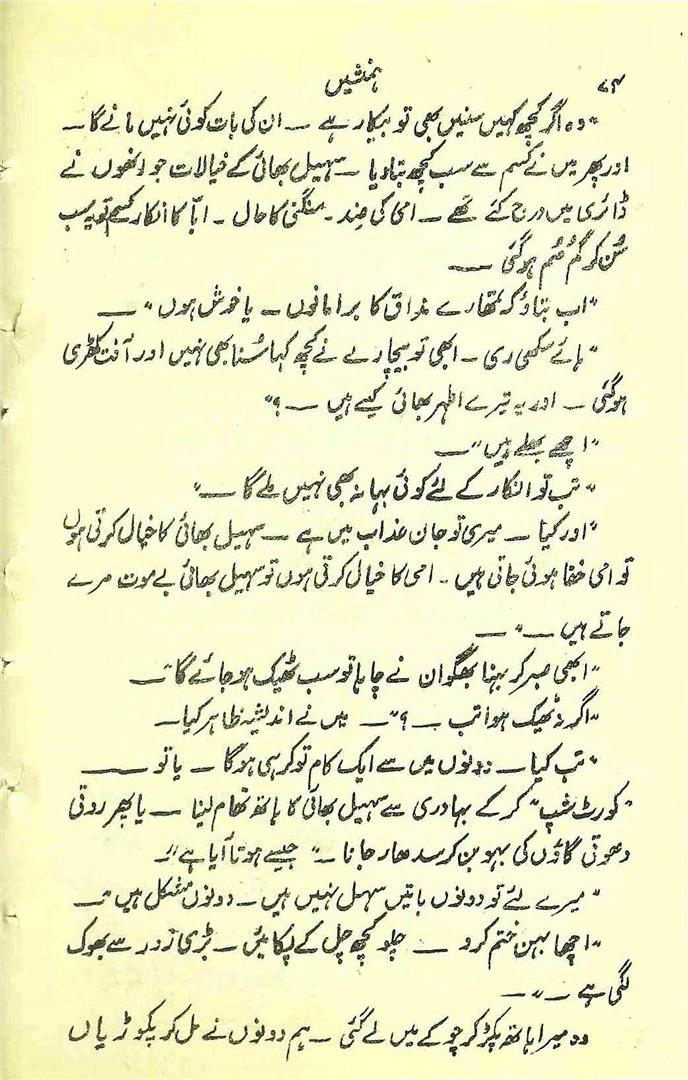 ۷۴ ہمنشیں
"وہ اگر کچھ کہیں سنیں بھی تو بیکار ہے ــ ان کی بات کوئی نہیں مانے گا ــ
اور پھر میں نے کسم سے سب کچھ بتا دیا ــ سہیل بھائی کے خیالات جو انھوں نے
ڈائری میں درج کئے تھے ــ امی کی ضد ـ منگنی کا حال ـ ابّا کا انکار کسم تو یہ سب
سُن کر گُم صُم ہو گئی ــ
"اب بتاؤ کہ تمھارے مذاق کا برا مانوں ــ یا خوش ہوں" ــ
"ہائے سکھی ری ــ ابھی تو بیچارے نے کچھ کہا سُنا بھی نہیں اور آفت کھڑی
ہو گئی ــ اور یہ تیرے اظہر بھائی کیسے ہیں ــ ؟"
"اچھے بھلے ہیں" ــ
"تب تو انکار کے لئے کوئی بہانہ بھی نہیں ملے گا ــ"
"اور کیا ــ میری تو جان عذاب میں ہے ــ سہیل بھائی کا خیال کرتی ہوں
تو امی خفا ہوئی جاتی ہیں ـ امی کا خیال کرتی ہوں تو سہیل بھائی بے موت مرے
جاتے ہیں ــ" ــ
"ابھی صبر کر بہنا بھگوان نے چاہا تو سب ٹھیک ہو جائے گا" ــ
"اگر نہ ٹھیک ہوا تب ــ ؟" ــ میں نے اندیشہ ظاہر کیا ــ
"تب کیا ــ دونوں میں سے ایک کام تو کر ہی ہوگا ــ یا تو ــــ
"کورٹ شپ" کر کے بہادری سے سہیل بھائی کا ہاتھ تھام لینا ــ یا پھر روتی
دھوتی گاؤں کی بہو بن کر سدھار جانا ــ" جیسے ہوتا آیا ہے" ــ
"میرے لئے تو دونوں باتیں سہل نہیں ہیں ــ دونوں مشکل ہیں" ــ
"اچھا بہن ختم کرو ــ چلو کچھ چل کے پکائیں ــ بڑی زور سے بھوک
لگی ہے ــ" ــ
وہ میرا ہاتھ پکڑ کر چوکے میں لے گئی ــ ہم دونوں نے مل کر پکوڑیاں